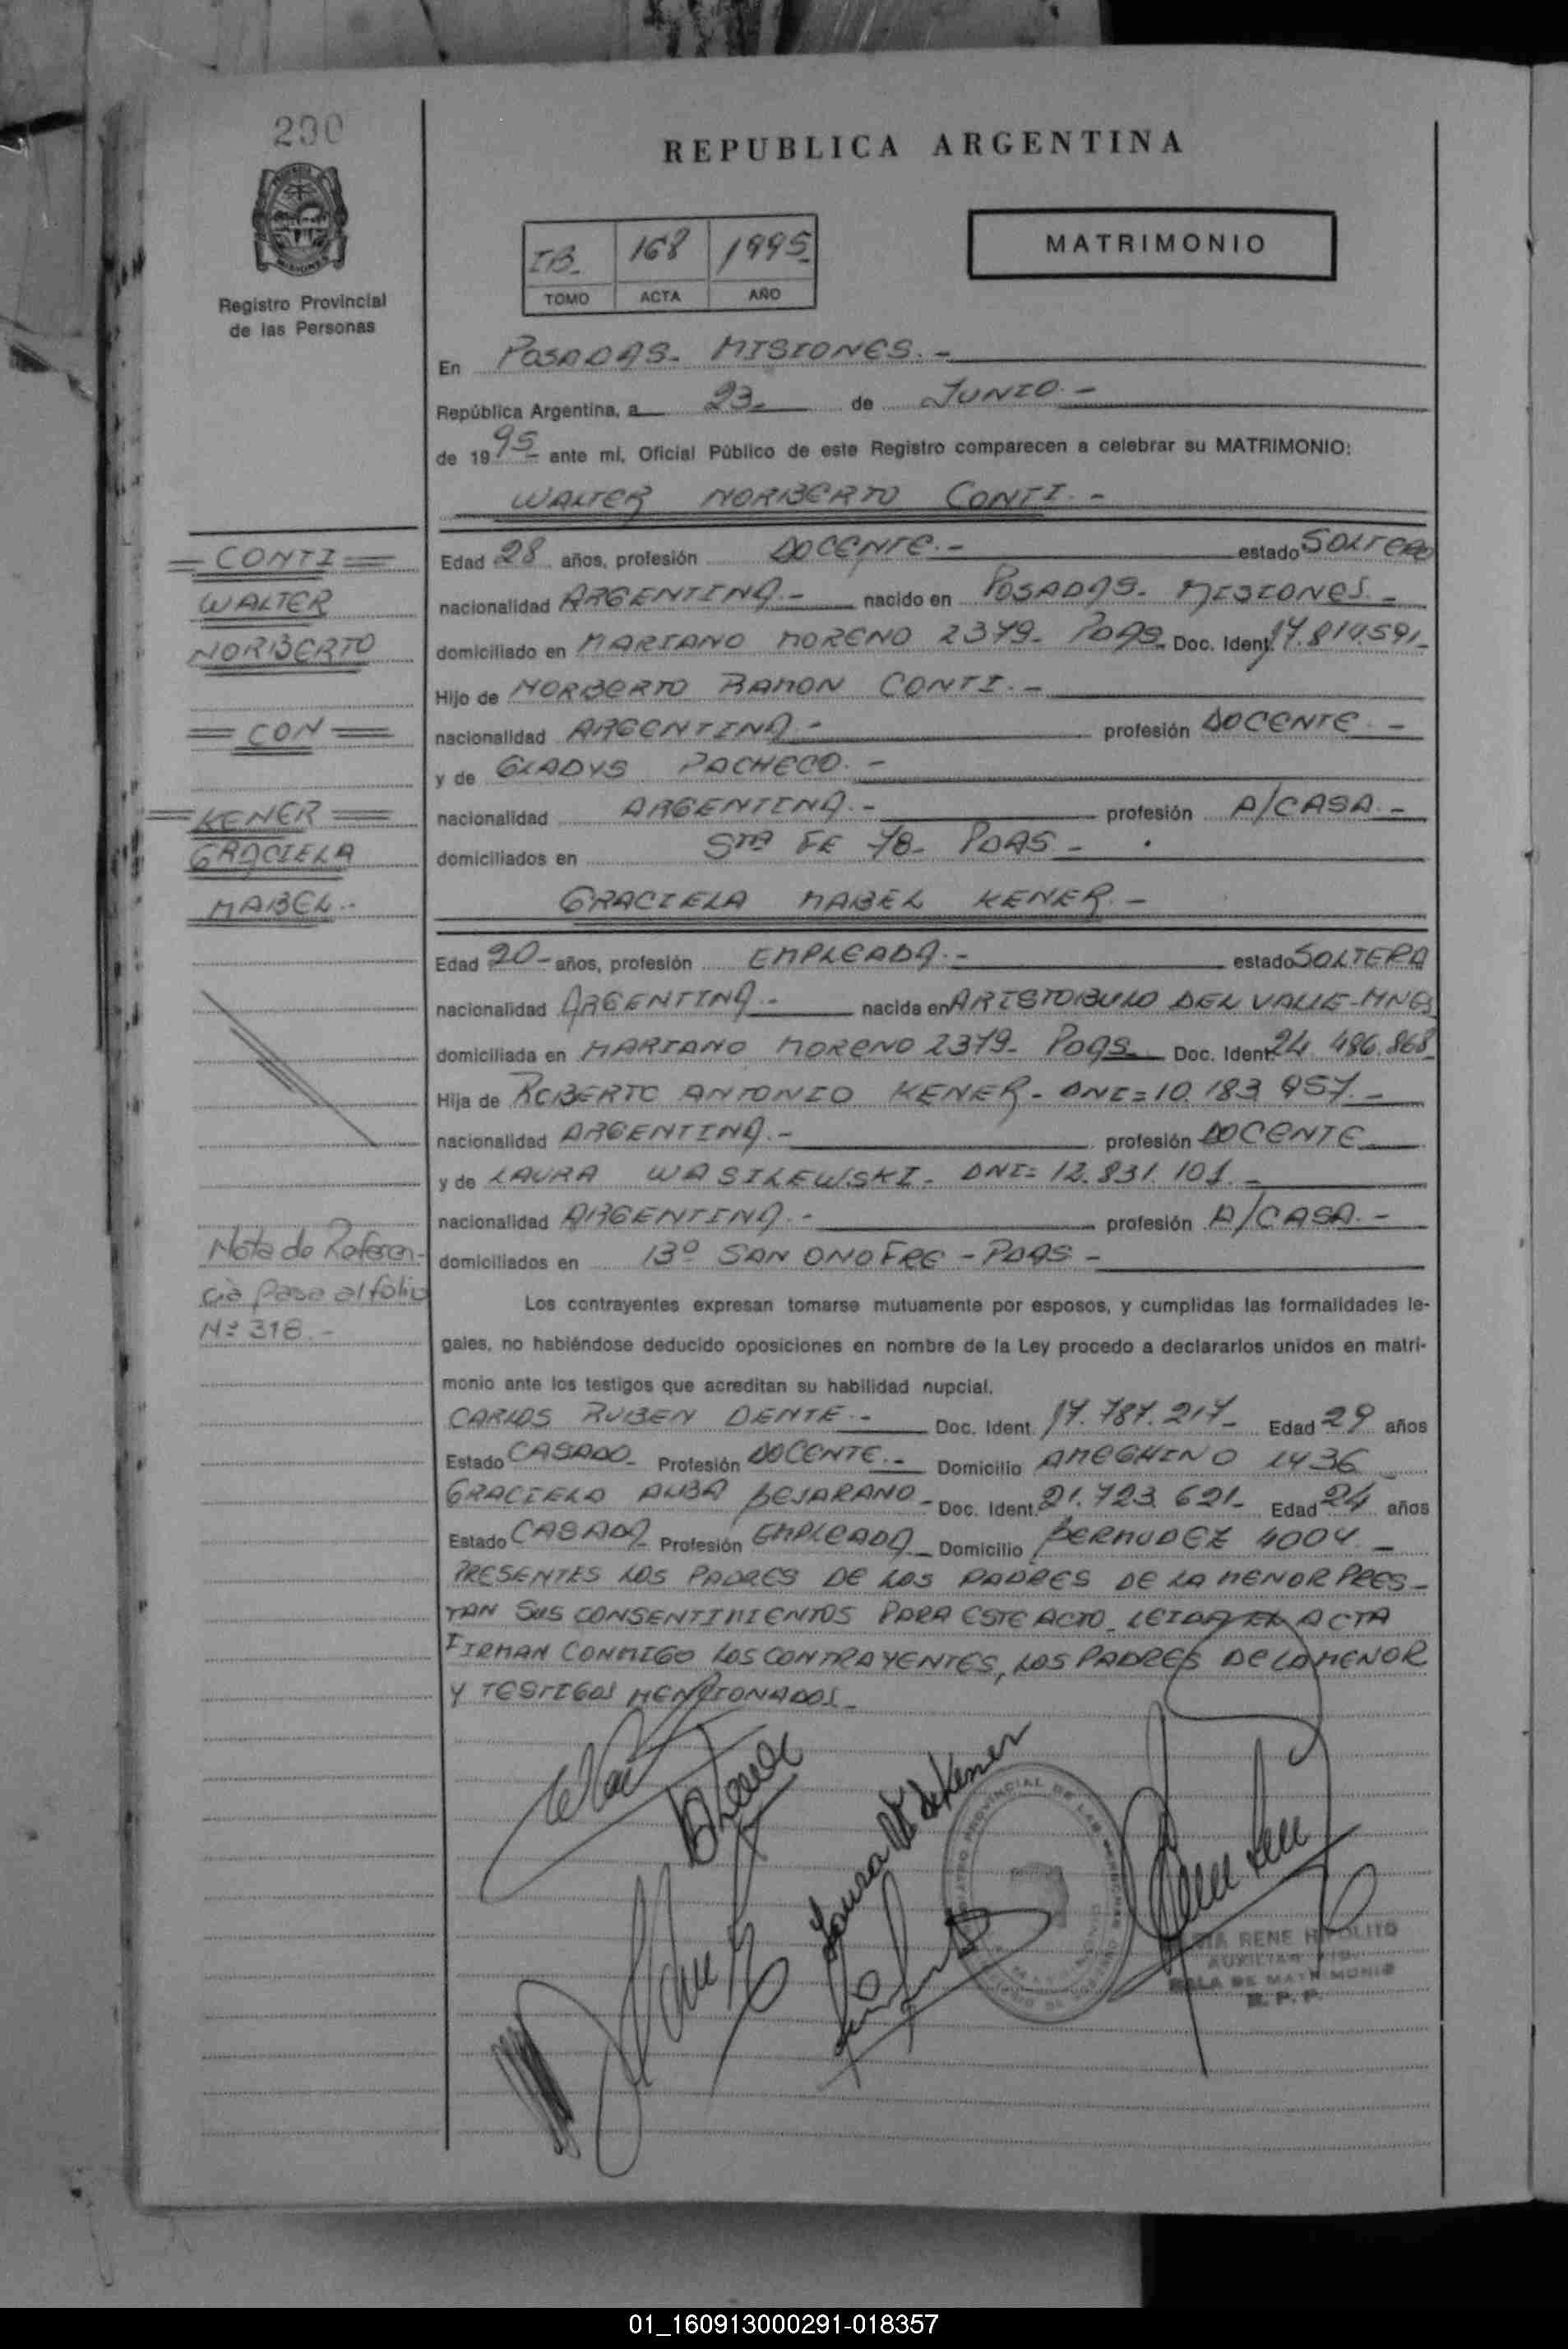 290
Registro Provincial
de las Personas
REPUBLICA ARGENTINA
IB- 168 1995-
TOMO ACTA AÑO
MATRIMONIO
En POSADAS- MISIONES.-
República Argentina, a 23- de JUNIO.-
de 1995- ante mí, Oficial Público de este Registro comparecen a celebrar su MATRIMONIO:
WALTER NORBERTO CONTI.-
=CONTI=
WALTER
NORBERTO
=CON=
=KENER=
GRACIELA
MABEL.-
Edad 28 años, profesión DOCENTE.- estado SOLTERO
nacionalidad ARGENTINA.- nacido en POSADAS- MISIONES.-
domiciliado en MARIANO MORENO 2379- PDAS- Doc. Ident. 17.814.591-
Hijo de NORBERTO RAMON CONTI.-
nacionalidad ARGENTINA.- profesión DOCENTE.-
y de GLADYS PACHECO.-
nacionalidad ARGENTINA.- profesión A/CASA.-
domiciliados en STA FE 78- PDAS-
GRACIELA MABEL KENER.-
Edad 20- años, profesión EMPLEADA.- estado SOLTERA
nacionalidad ARGENTINA.- nacida en ARISTOBULO DEL VALLE-MNES
domiciliada en MARIANO MORENO 2379- PDAS- Doc. Ident. 24.486.868
Hija de ROBERTO ANTONIO KENER- DNI=10.183.957.-
nacionalidad ARGENTINA.- profesión DOCENTE
y de LAURA WASILEWSKI- DNI=12.831.101.-
nacionalidad ARGENTINA.- profesión A/CASA.-
domiciliados en 13º SAN ONOFRE-PDAS-
Nota de Referen-
cia Pasa al folio
Nº 318.-
Los contrayentes expresan tomarse mutuamente por esposos, y cumplidas las formalidades le-
gales, no habiéndose deducido oposiciones en nombre de la Ley procedo a declararlos unidos en matri-
monio ante los testigos que acreditan su habilidad nupcial.
CARLOS RUBEN DENTE.- Doc. Ident. 17.787.217- Edad 29 años
Estado CASADO- Profesión DOCENTE.- Domicilio AMEGHINO 1436-
GRACIELA ALBA BEJARANO- Doc. Ident. 21.723.621- Edad 24 años
Estado CASADA- Profesión EMPLEADA- Domicilio BERMUDEZ 4004-
PRESENTES LOS PADRES DE LOS PADRES DE LA MENOR PRES-
TAN SUS CONSENTIMIENTOS PARA ESTE ACTO- LEIDA EL ACTA
FIRMAN CONMIGO LOS CONTRAYENTES, LOS PADRES DE LA MENOR
Y TESTIGOS MENCIONADOS-
Laura W. de Kener
RENE HIPOLITO
AUXILIAR
SALA DE MATRIMONIO
R. P. P.
01_160913000291-018357